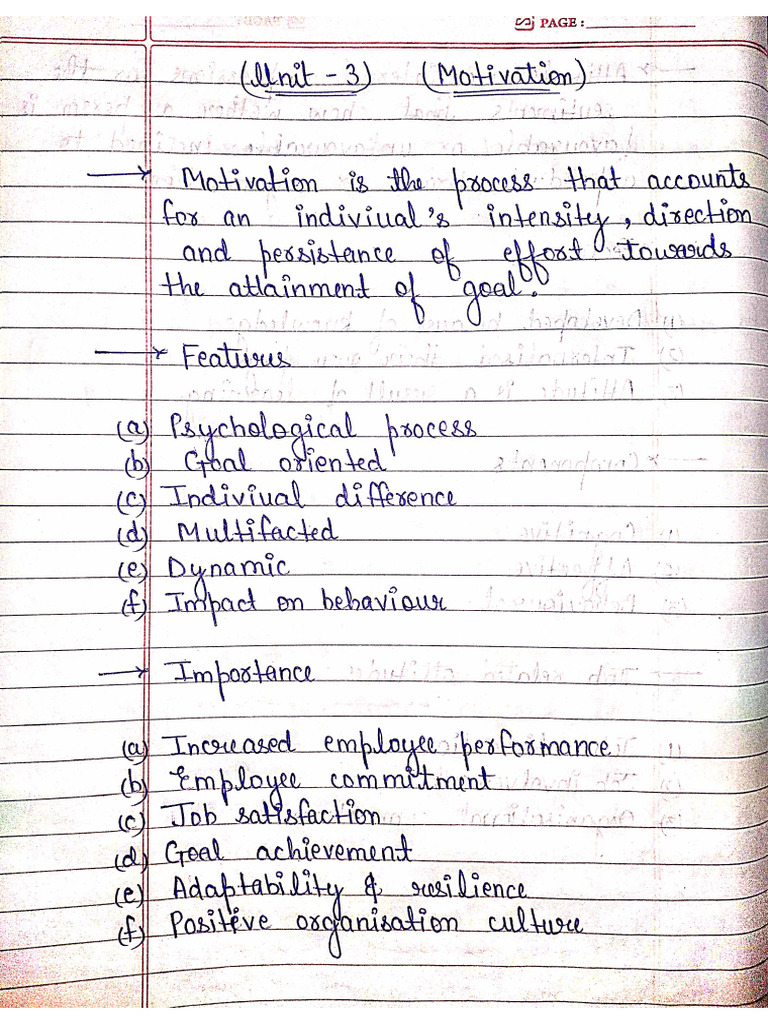 PAGE:
(Unit - 3) (Motivation)
→ Motivation is the process that accounts
for an indiviual's intensity, direction
and persistance of effort towards
the attainment of goal.
→ Features
(a) Psychological process
(b) Goal oriented
(c) Indiviual difference
(d) Multifacted
(e) Dynamic
(f) Impact on behaviour
→ Importance
(a) Increased employee performance
(b) Employee commitment
(c) Job satisfaction
(d) Goal achievement
(e) Adaptability & resilience
(f) Positive organisation culture